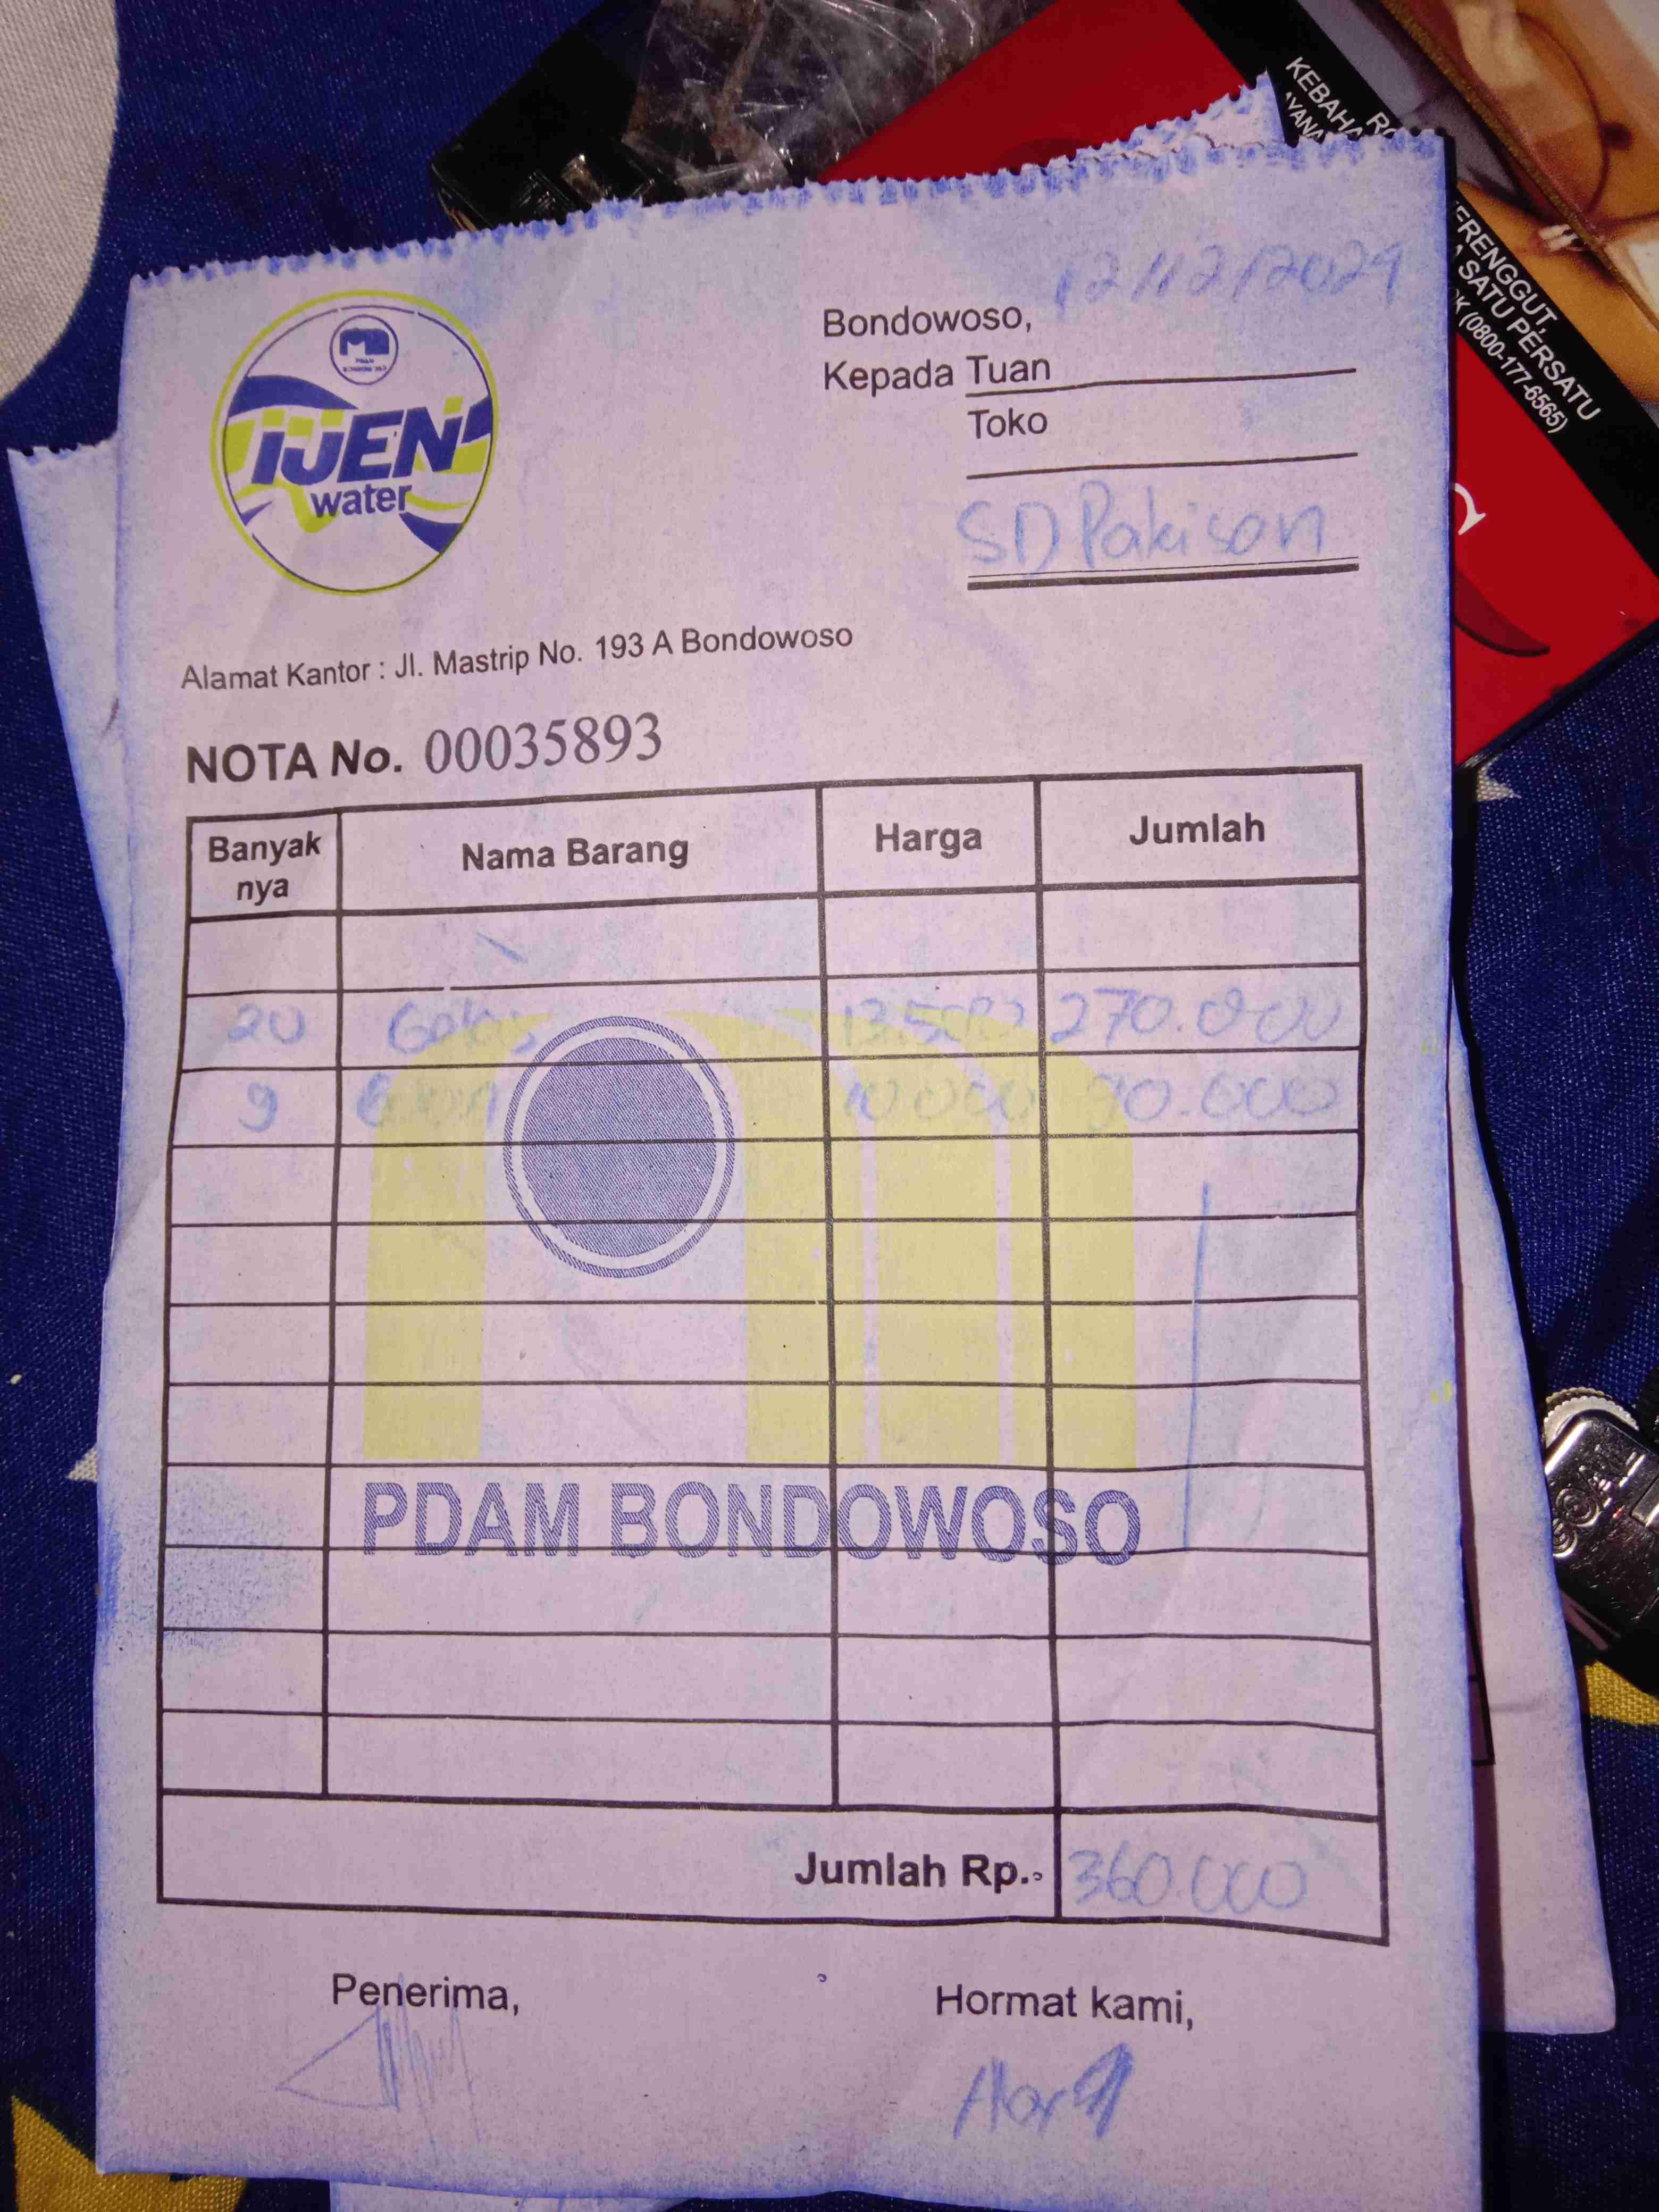 PDAM
BONDOWOSO
IJEN
water
Bondowoso, 12/12/2024
Kepada Tuan
Toko
SD Pakisan
Alamat Kantor : Jl. Mastrip No. 193 A Bondowoso
NOTA No. 00035893
Banyak nya Nama Barang Harga Jumlah
20 Gelas 13.500 270.000
9 10.000 90.000
PDAM BONDOWOSO
Jumlah Rp. 360.000
Penerima, Hormat kami,
KEBAHA
ERENGGUT,
SATU PERSATU
(0800-177-6565)